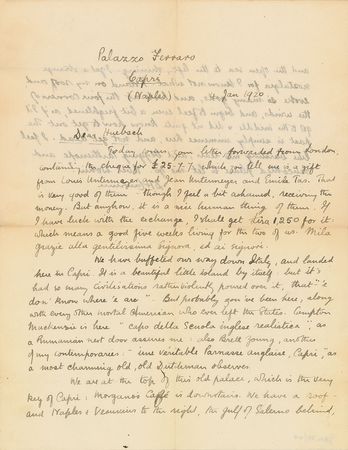 Palazzo Ferraro
Capri
(Naples) 4 Jan 1920
Dear Huebsch
Today came your letter forwarded from London,
containing the cheque for £25.7.7 which you tell me is a gift
from Louis Untermeyer and Jean Untermeyer and Emile Tas. That
is very good of them – though I feel a bit ashamed, receiving the
money. But anyhow, it is a nice human thing of them. If
I have luck with the exchange, I shall get Lira 1,250 for it:
which means a good five weeks living for the two of us. Mila
grazie alla gentilissima signora, ed ai signori.
We have buffeted our way down Italy, and landed
here in Capri. It is a beautiful little island by itself, but it's
had so many civilisations rather violently poured over it, that "'e
don' know where 'e are". But probably you've been here, along
with every other mortal American who ever left the States. Compton
Mackenzie is here "capo della Scuola inglese realistica", as
a Rumanian next door assures me: also Brett Young, another
of my contemporaries: "une veritable Parnasse anglaise, Capri", as
a most charming old, old Dutchman observes.
We are at the top of this old palace, which is the very
key of Capri: Morgano's Caffè is downstairs. We have a roof –
and Naples & Vesuvius to the right, the gulf of Salerno behind,